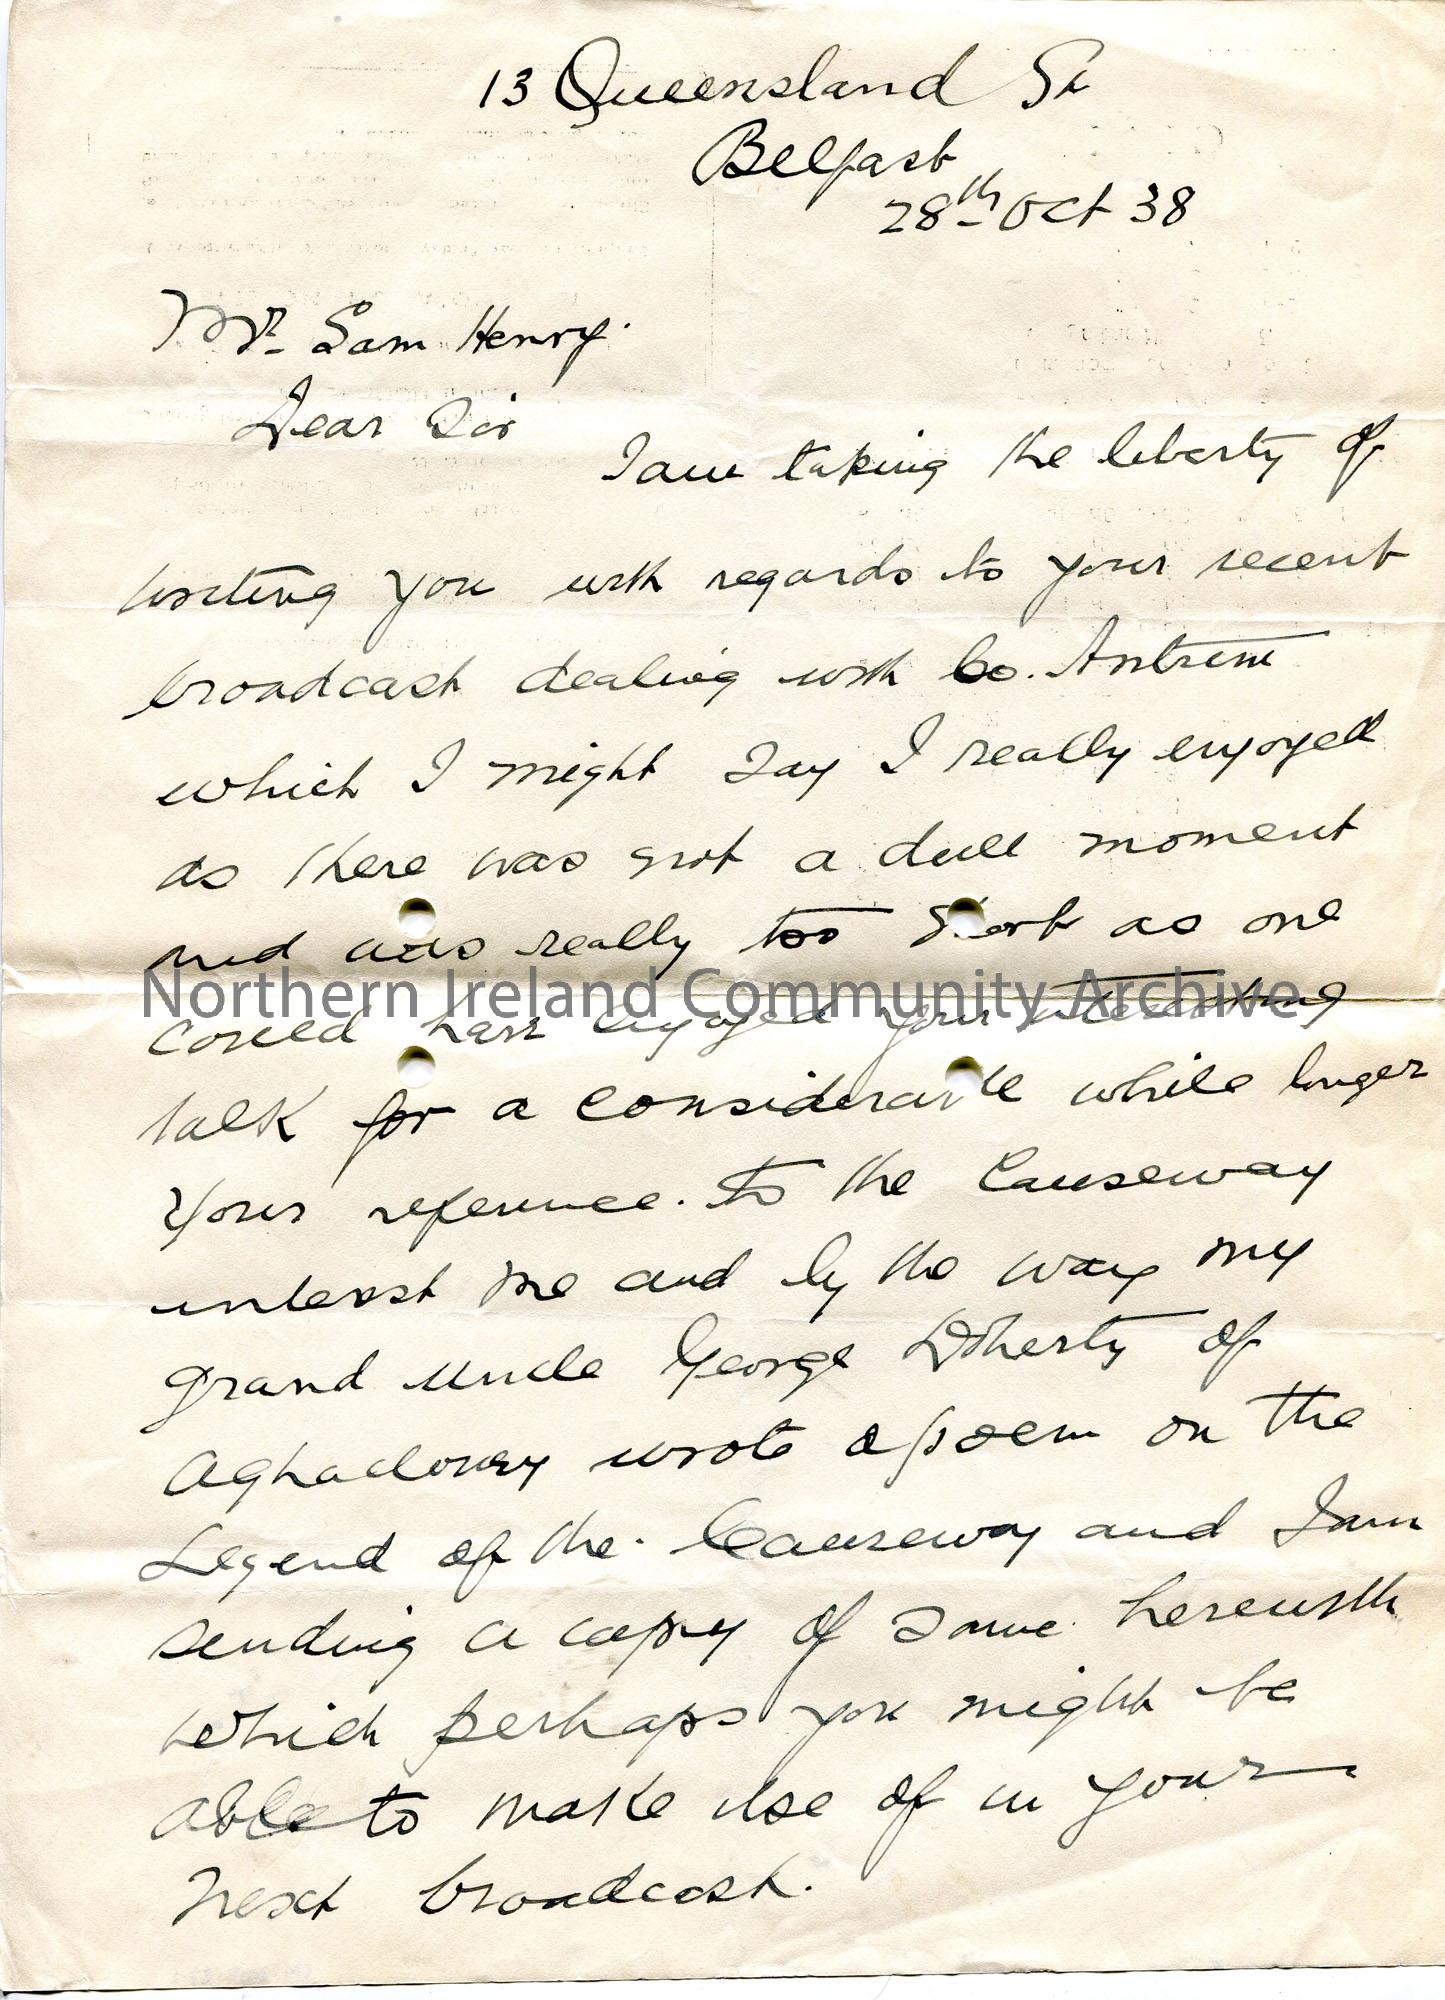 13 Queensland St
Belfast
28th Oct 38
Mr. Sam Henry.
Dear Sir
I am taking the liberty of
writing you with regards to your recent
broadcast dealing with Co. Antrim
which I might say I really enjoyed
as there was not a dull moment
and was really too short as one
Northern Ireland Community Archive
could have enjoyed your interesting
talk for a considerable while longer
Your reference to the Causeway
interest me and by the way my
grand uncle George Doherty of
Aghadowey wrote a poem on the
Legend of the Causeway and I am
sending a copy of same herewith
which perhaps you might be
able to make use of in your
next broadcast.